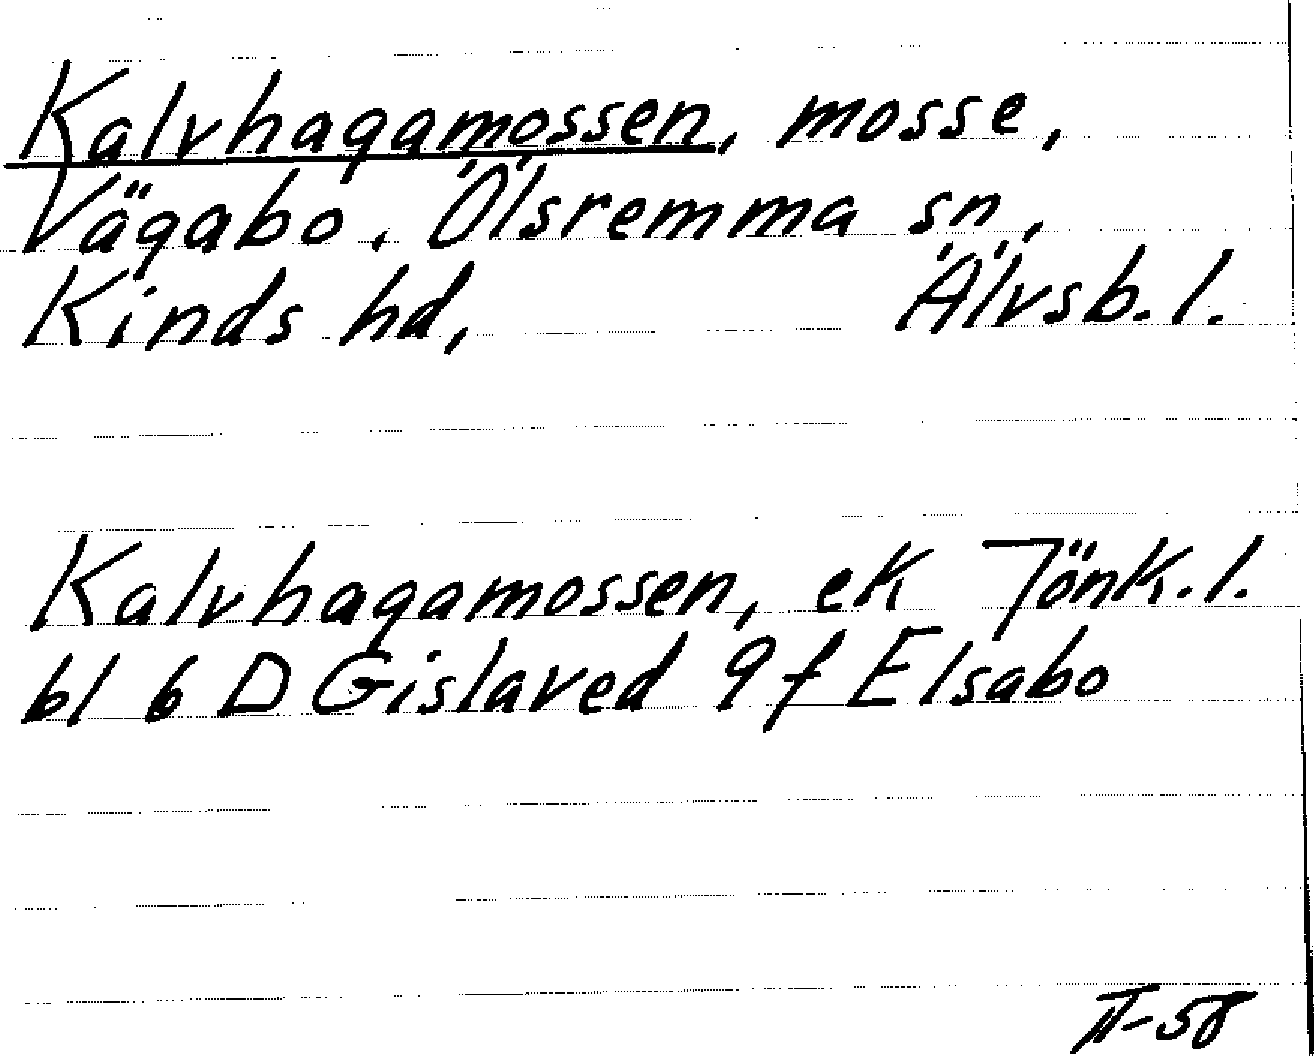 Kalvhagamossen, mosse,
Vägabo, Ölsremma sn,
Kinds hd, Älvsb. l.
Kalvhagamossen, ek Jönk. l.
bl 6 D Gislaved 9f Elsabo
II-58